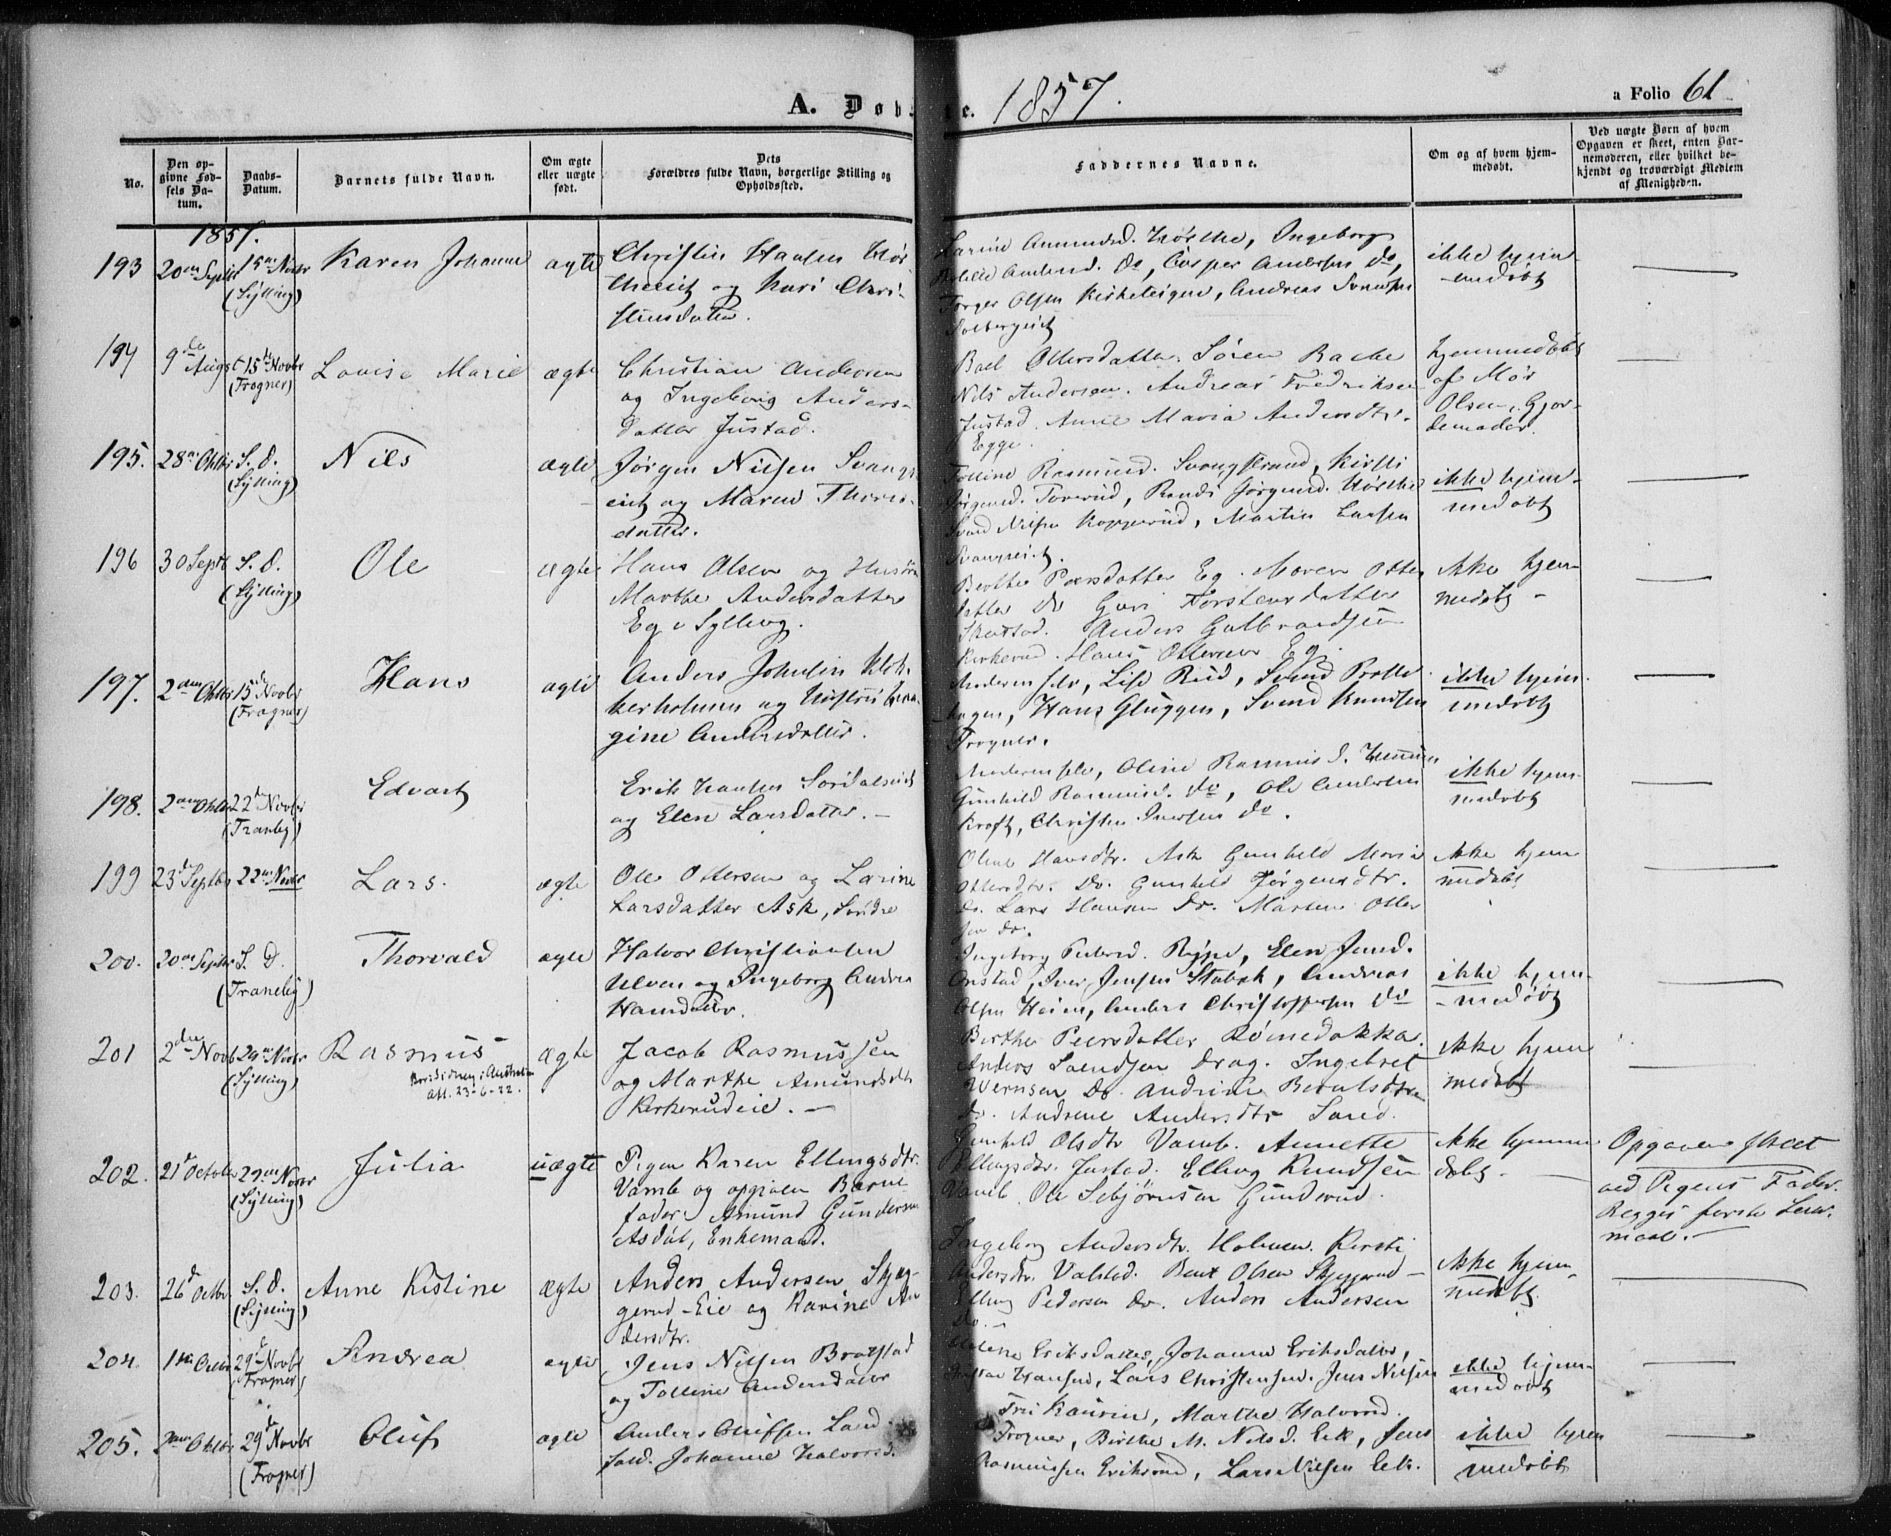 A. Døbte. 1857.
a Folio 61
No.
Den opgivne Fødsels Datum.
Daabs-Datum.
Barnets fulde Navn.
Om ægte eller uægte født.
Dets Forældres fulde Navn, borgerlige Stilling og Opholdssted.
Faddernes Navne.
Om og af hvem hjemmedøbt.
Ved uægte Børn af hvem Opgaven er skeet, enten Barnemoderen, eller hvilket bekjendt og troværdigt Medlem af Menigheden.
1857.
193 20de Septbr 15de Novbr (Sylling) Karen Johanne ægte
Christen Hansen
og Kari Christensdatter.
Larine Amundsd. Hørthe, Ingeborg
Amund. do, Casper Andersen do,
Torger Olsen Kirketeigen, Andreas Svendsen
ikke hjem-
medøbt
194 9de Augst 15de Novbr (Frogner) Lovise Marie ægte
Christian Andersen
og Ingeborg Anders-
datter Justad.
Ottersdatter. Søren Bache
Nils Andersen. Andreas Fredriksen
Justad. Anne Maria Andersdtr.
Egge.
hjemmedøbt
af Mor
Olsen, Gjor-
demoder.
195. 28de Oktbr S. d. (Sylling) Nils ægte
Jørgen Nilsen Svangs-
eiet og Maren Thores-
datter.
Rasmusd. Svangstrand, Kirsti
Jørgensd. Toverud, Randi Jørgensd. Hørthe
Svend Nilsen Kopperud, Martin Larsen
Svangseiet.
ikke hjem-
medøbt
196 30 Septb S. d. (Sylling) Ole ægte
Hans Olsen og Hustru
Marthe Andersdatter
Eg i Sylling.
Berthe Peersdatter Eg. Maren Otters
datter do Guri Torstensdatter
Anders Gulbrandsen
Kirkerud. Hans Ottersen Eg.
ikke hjem
medøbt -
197. 2den Oktbr 15de Novbr (Frogner) Hans ægte
Anders Johnsen Klok-
kerholmen og Hustru
gine Andersdatter.
Moderen selv, Lise Rud, Svend
hagen, Hans Gluggen, Svend Knudsen
Frogner.
ikke hjem-
medøbt
198. 2den Oktbr 22de Novbr (Tranby) Edvart
Erik Hansen
og Elen Larsdatter. -
Moderen selv, Oline Rasmusd.
Gunhild Rasmusd. do, Ole Andersen
Kroft, Christen Iversen do.
ikke hjem-
medøbt
199 23de Septbr 22de Novbr Lars. ægte
Ole Ottersen og Larine
Larsdatter Ask, Søndre
Oline Hansdtr. Ask Gunhild Maria
Ottersdtr. do. Gunhild Jørgensdtr.
do. Lars Hansen do. Martin Otter
sen do.
ikke hjem
medøbt
200. 20de Septbr S. D. (Tranby) Thorvald ægte
Halvor Christiansen
Ulven og Ingeborg Andrea
Hansdatter.
Ingeborg Petersd. Rype, Elen Jensd.
Onstad, Iver Jensen Stabæk, Andreas
Olsen Heien, Anders Christophersen do
ikke hjem-
- medøbt
201 2den Novb 29de Novbr (Sylling) Rasmus ægte
Bor i Sidney i Australia
att. 23-6-22.
Jacob Rasmussen
og Marthe Amundsdtr
Kirkerudeie. -
Berthe Peersdatter
Anders Svendsen Drag. Ingebret
do. Andrine Berntsdtr
do. Andrene Andersdtr
ikke hjem
medøbt
202. 21de Octobr 29de Novbr (Sylling) Julia uægte
Pigen Karen Ellingsdtr.
Vamb og opgiven Barne
fader: Amund Gundersen
Asdøl, Enkemand.
Gunhild Olsdtr Vamb. Annette
Ellingsdtr. Justad. Elling Knudsen
Vamb. Ole Gunderud.
ikke hjemme
døbt -
Opgaven skeet
ved Pigens Fader.
Begges første Leier-
maal. -
203. 26de Octbr S. d. (Sylling) Anne Kistine ægte
Anders Andersen Skjæg-
gerud-Eie og Karine An
dersdtr.
Ingeborg Andersdtr. Holmen. Kersti
Andersdtr. Valstad. Bent Olsen Skjeggerud -
Elling Pedersen do. Anders Andersen
do. -
ikke hjem-
medøbt
204. 1ste Octbr 29de Novbr (Frogner) Andrea ægte
Jens Nilsen Bratstad
og Talline Andersdatter
Eriksdatter, Johanne Eriksdatter,
Hansen, Lars Christensen. Jens Nilsen
ikke hjem-
medøbt
205. 2den Oktbr 29de Novbr (Frogner) Oluf ægte
Anders Olufsen Land-
fald. Johanne Halvorsd.
Fru Kaurin, Marthe Halvorsd.
Frogner, Birthe M. Nilsd. Eek, Jens
Rasmussen Eriksrud, Lars Nilsen Eek.
ikke hjem
medøbt